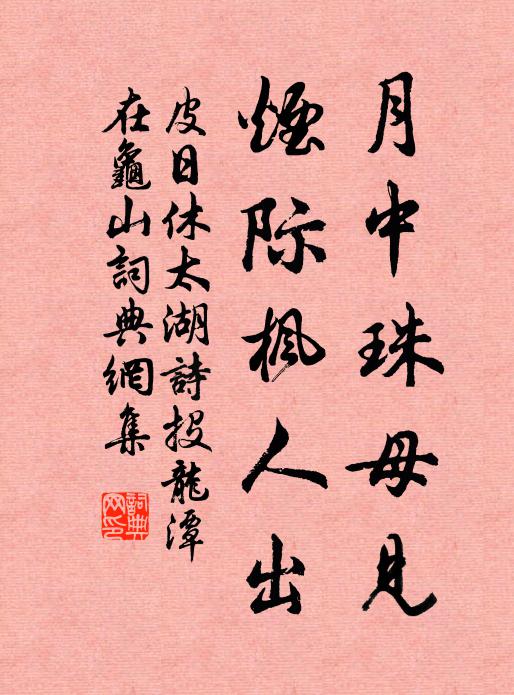 月中珠母見
煙际楓人出
皮日休太湖詩投龍潭
在龜山詞典網集
詞典
网印